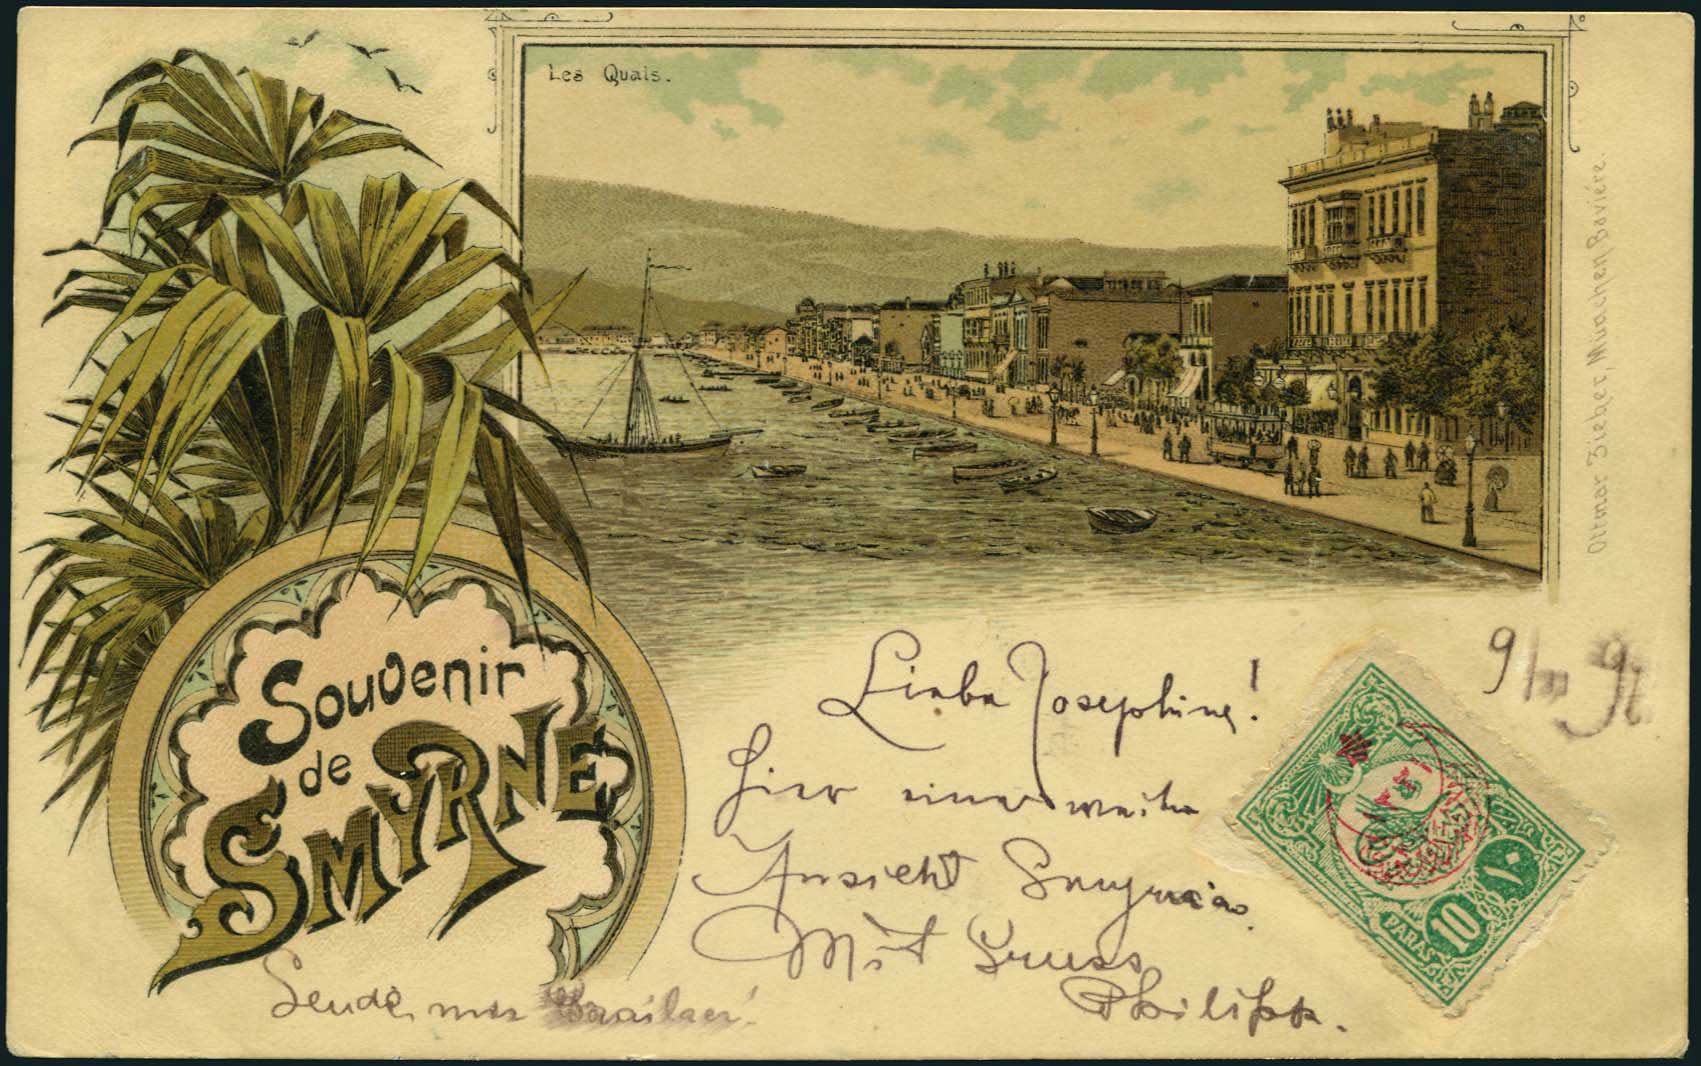 Les Quais.
Ottmar Zieher, München Bavière.
Souvenir
de
SMYRNE
9/III 97
Liebe Josephine!
Hier eine weite
Ansicht Smyrnas.
Mit Gruss
Philipp.
Sende mir
10
PARAS
١٠